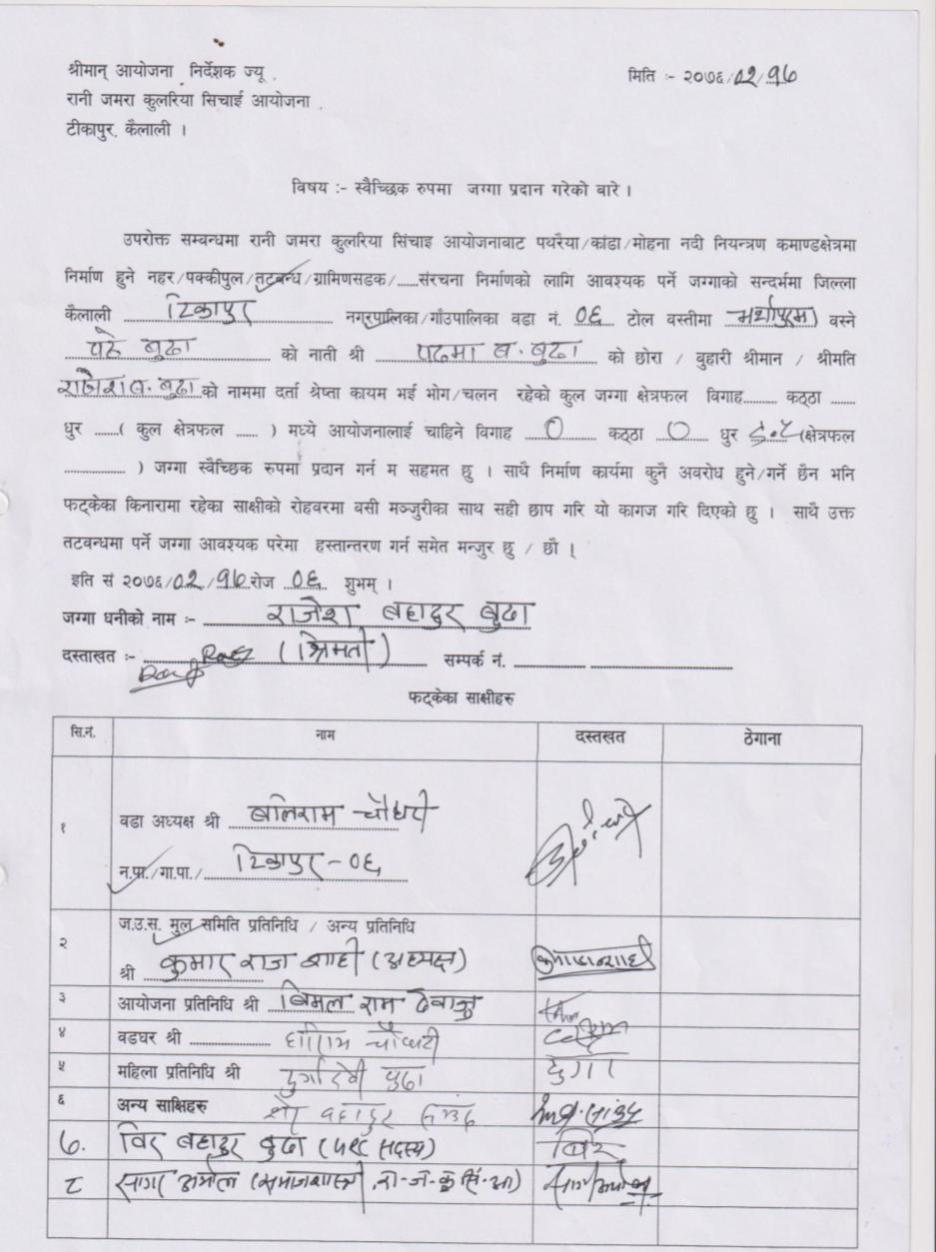 श्रीमान् आयोजना निर्देशक ज्यू
मिति :- २०७६/02/१७
रानी जमरा कुलरिया सिचाई आयोजना
टीकापुर, कैलाली ।
विषय :- स्वैच्छिक रुपमा जग्गा प्रदान गरेको बारे ।
उपरोक्त सम्बन्धमा रानी जमरा कुलरिया सिंचाइ आयोजनावाट पथरैया/कांडा/मोहना नदी नियन्त्रण कमाण्डक्षेत्रमा
निर्माण हुने नहर/पक्कीपुल/तटबन्ध/ग्रामिणसडक/......संरचना निर्माणको लागि आवश्यक पर्ने जग्गाको सन्दर्भमा जिल्ला
कैलाली टिकापुर नगरपालिका/गाँउपालिका वडा नं. ०६ टोल वस्तीमा वस्ने
बुढा को नाती श्री पदमा ब. बुढा को छोरा / बुहारी श्रीमान / श्रीमति
राजेश ब. बुढा को नाममा दर्ता श्रेष्ता कायम भई भोग/चलन रहेको कुल जग्गा क्षेत्रफल विगाह......... कठ्ठा ......
धुर ......( कुल क्षेत्रफल ...... ) मध्ये आयोजनालाई चाहिने विगाह 0 कठ्ठा 0 धुर (क्षेत्रफल
.............. ) जग्गा स्वैच्छिक रुपमा प्रदान गर्न म सहमत छु । साथै निर्माण कार्यमा कुनै अवरोध हुने/गर्ने छैन भनि
फट्केका किनारामा रहेका साक्षीको रोहवरमा वसी मञ्जुरीका साथ सही छाप गरि यो कागज गरि दिएको छु । साथै उक्त
तटवन्धमा पर्ने जग्गा आवश्यक परेमा हस्तान्तरण गर्न समेत मन्जुर छु / छौ ।
इति सं २०७६/02/१७ रोज ०६ शुभम् ।
जग्गा धनीको नाम :- राजेश बहादुर बुढा
दस्ताखत :- (श्रिमती) सम्पर्क नं.
फट्केका साक्षीहरु
सि.नं. नाम दस्तखत ठेगाना
१ वडा अध्यक्ष श्री बलिराम चौधरी
न.पा./गा.पा./ टिकापुर - ०६
२ ज.उ.स. मुल समिति प्रतिनिधि / अन्य प्रतिनिधि
श्री कुमार राज शाही (अध्यक्ष)
३ आयोजना प्रतिनिधि श्री बिमल राम
४ वडघर श्री चौधरी
५ महिला प्रतिनिधि श्री दुर्गा देवी बुढा दुर्गा
६ अन्य साक्षिहरु बहादुर
७. विर बहादुर बुढा सदस्य) बिर
८ (समाजशास्त्री, रा-ज-कु-सिं-आ)